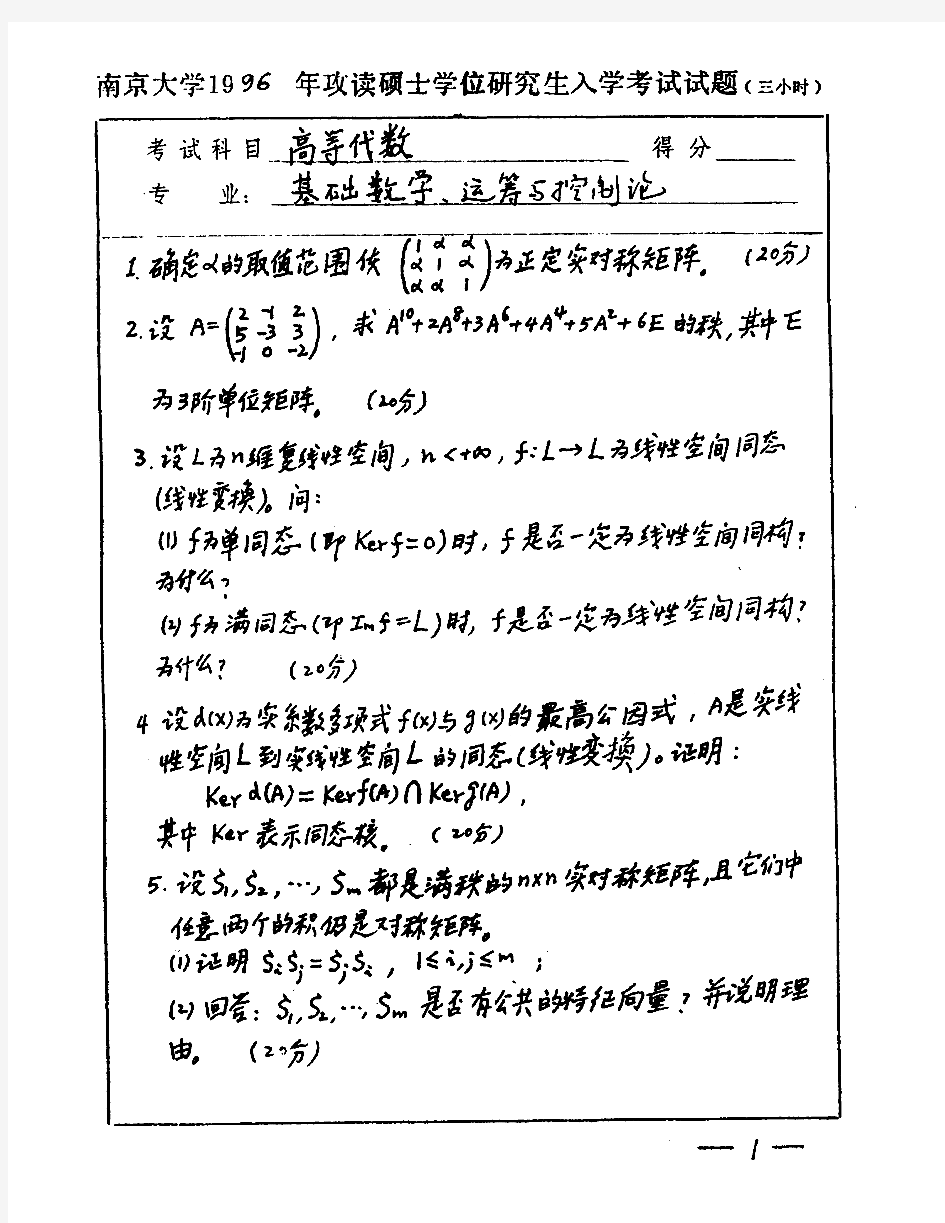 南京大学1996 年攻读硕士学位研究生入学考试试题(三小时)
考试科目 高等代数 得分
专 业: 基础数学、运筹与控制论
1. 确定α的取值范围使 (1 α α / α 1 α / α α 1) 为正定实对称矩阵。 (20分)
2. 设 A=(2 -1 2 / 5 -3 3 / -1 0 -2), 求 A¹⁰+2A⁸+3A⁶+4A⁴+5A²+6E 的秩,其中E
为3阶单位矩阵。 (20分)
3. 设L为n维复线性空间, n<+∞, f:L→L为线性空间同态
(线性变换)。问:
(1) f为单同态(即Kerf=0)时, f是否一定为线性空间同构?
为什么?
(2) f为满同态(即Imf=L)时, f是否一定为线性空间同构?
为什么? (20分)
4 设d(x)为实系数多项式f(x)与g(x)的最高公因式, A是实线
性空间L到实线性空间L的同态(线性变换)。证明:
Ker d(A)=Kerf(A)∩Kerg(A),
其中Ker表示同态核。 (20分)
5. 设S₁,S₂,…,Sₘ都是满秩的n×n实对称矩阵,且它们中
任意两个的积仍是对称矩阵。
(1) 证明 SᵢSⱼ=SⱼSᵢ, 1≤i,j≤m;
(2) 回答: S₁,S₂,…,Sₘ是否有公共的特征向量? 并说明理
由。 (20分)
— 1 —